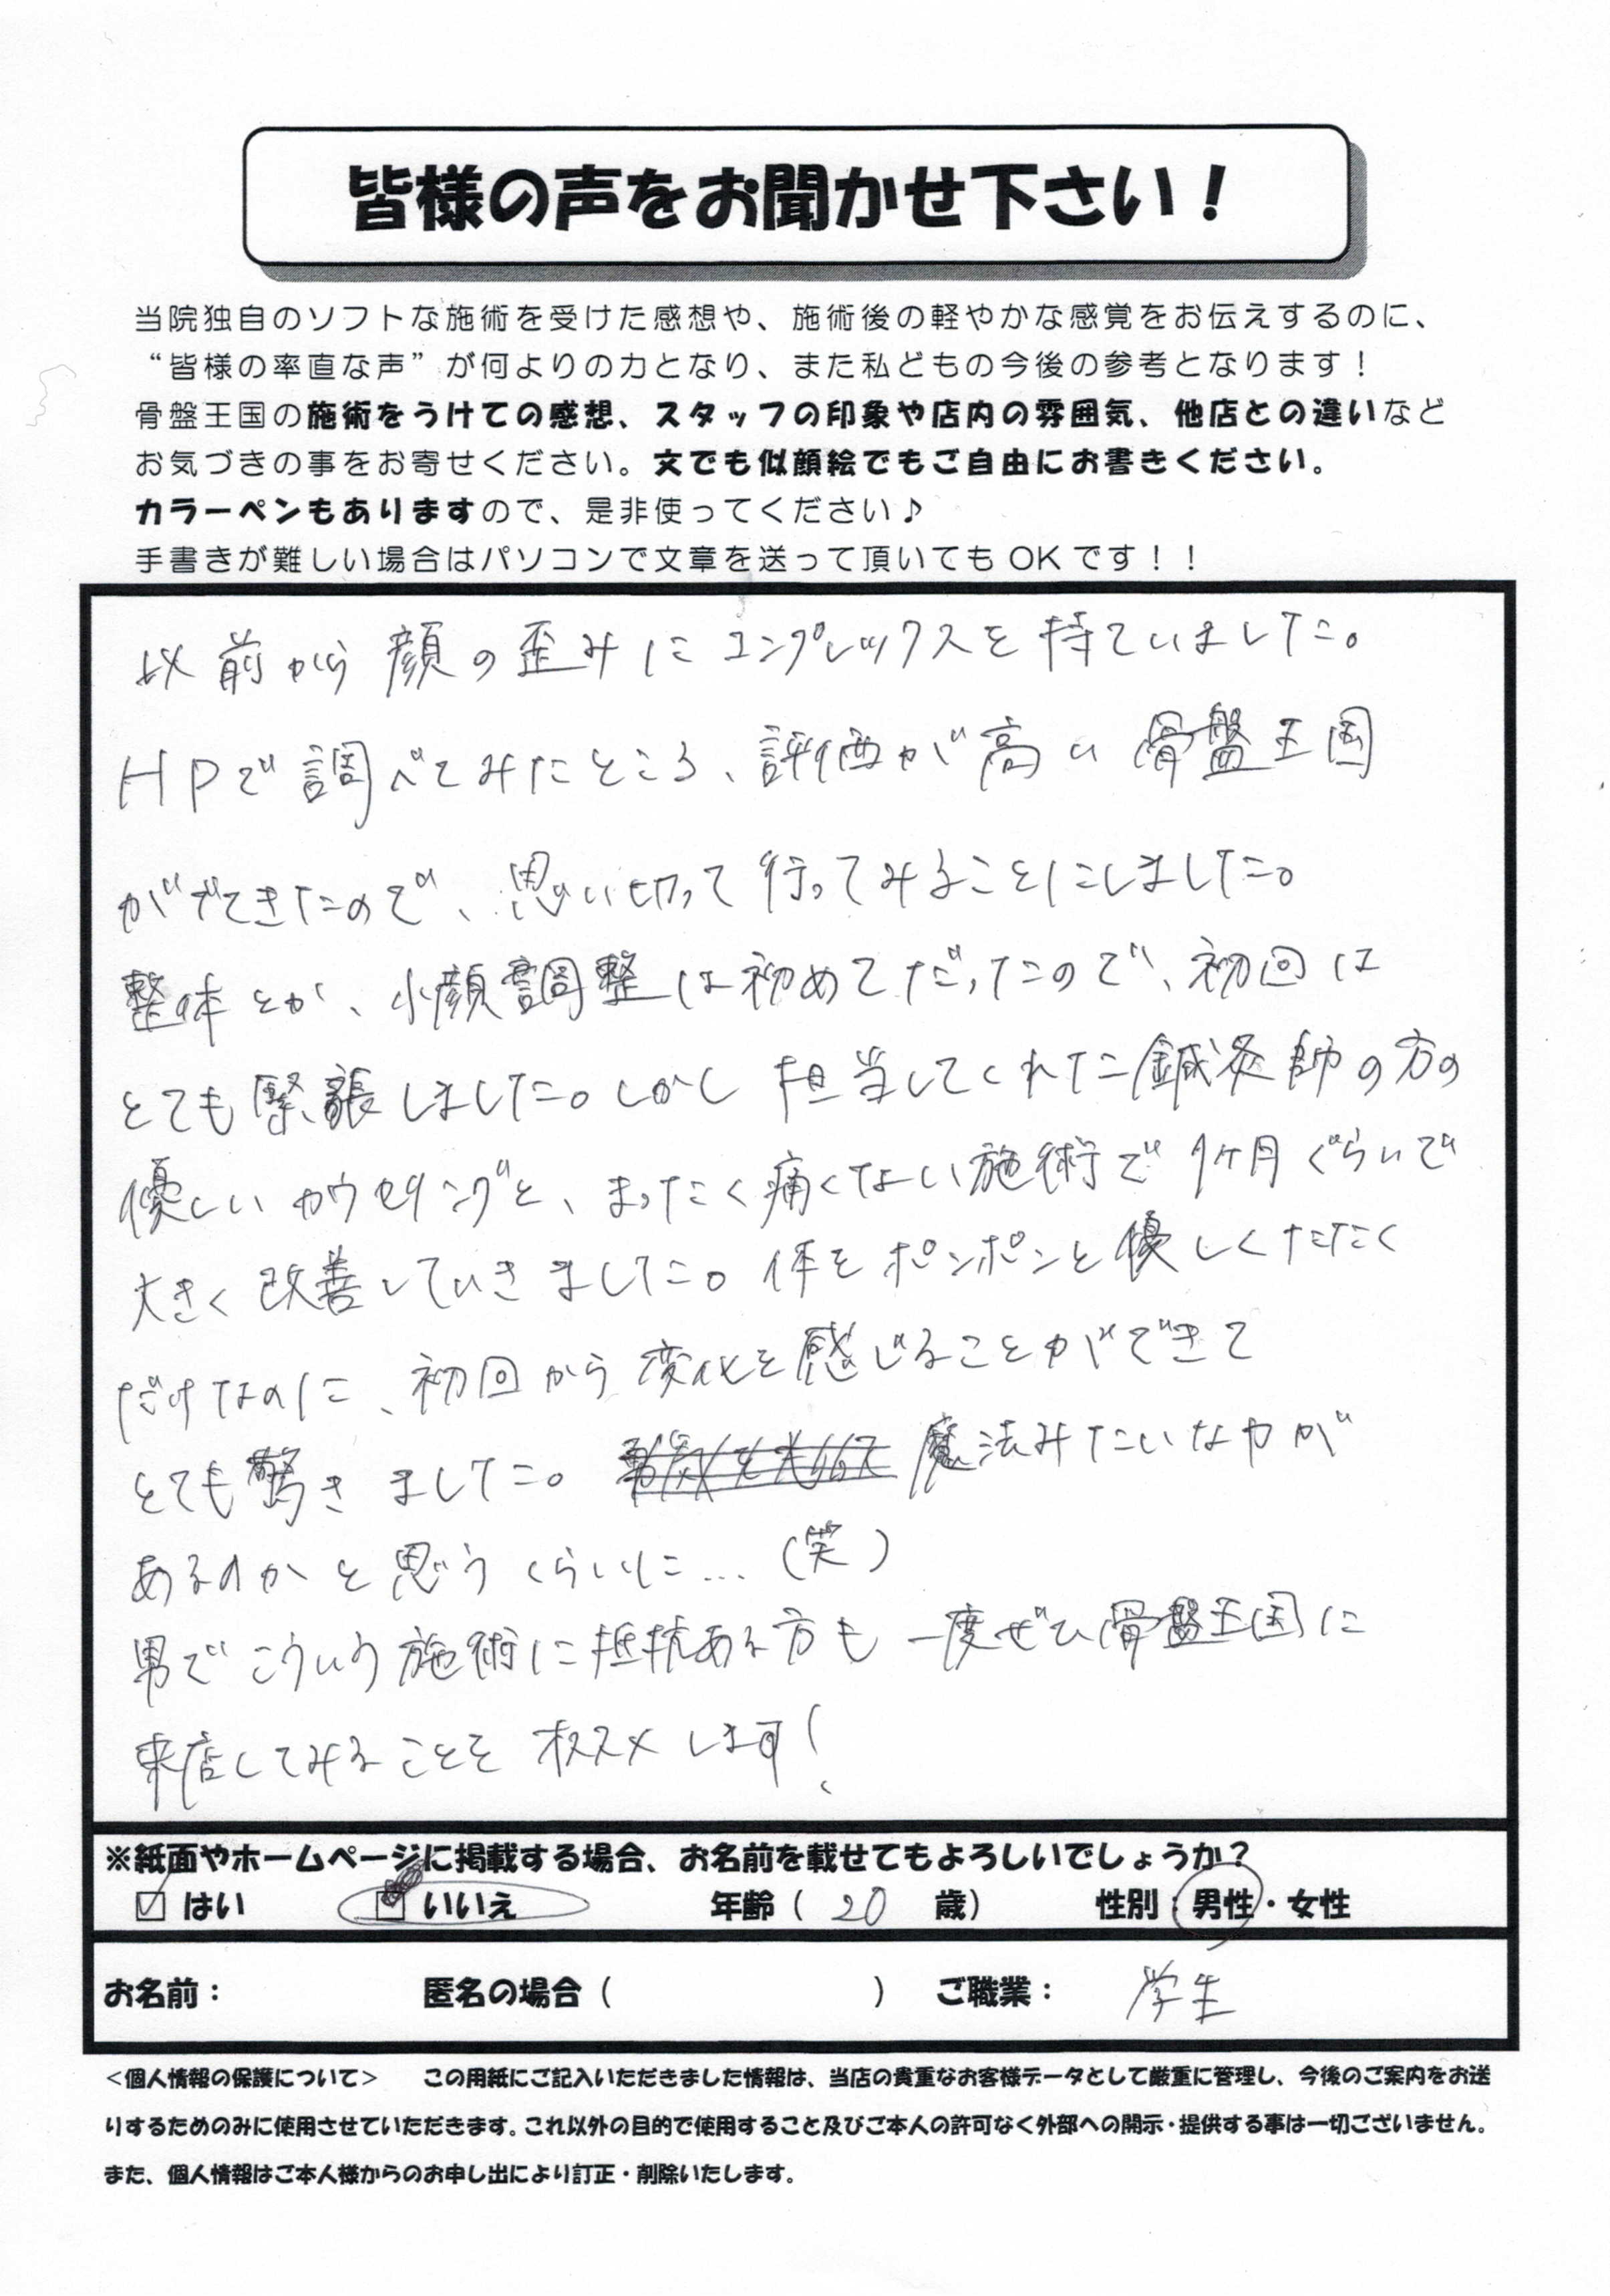 皆様の声をお聞かせ下さい！
当院独自のソフトな施術を受けた感想や、施術後の軽やかな感覚をお伝えするのに、
“皆様の率直な声”が何よりの力となり、また私どもの今後の参考となります！
骨盤王国の施術をうけての感想、スタッフの印象や店内の雰囲気、他店との違いなど
お気づきの事をお寄せください。文でも似顔絵でもご自由にお書きください。
カラーペンもありますので、是非使ってください♪
手書きが難しい場合はパソコンで文章を送って頂いてもOKです！！
以前から顔の歪みにコンプレックスを持ていました。
HPで調べてみたところ、評価が高い骨盤王国
がでてきたので、思い切って行ってみることにしました。
整体とか、小顔調整は初めてだったので、初回は
とても緊張しました。しかし担当してくれた鍼灸師の方の
優しいカウセリングと、まったく痛くない施術で1ヶ月ぐらいで
大きく改善していきました。体をポンポンと優しくたたく
だけなのに、初回から変化を感じることができて
とても驚きました。魔法みたいな力が
あるのかと思うくらいに…(笑)
男でこういう施術に抵抗ある方も一度ぜひ骨盤王国に
来店してみることをオススメします!
※紙面やホームページに掲載する場合、お名前を載せてもよろしいでしょうか？
☑ はい ☑ いいえ 年齢（ 20 歳） 性別：男性・女性
お名前： 匿名の場合（ ） ご職業： 学生
＜個人情報の保護について＞ この用紙にご記入いただきました情報は、当店の貴重なお客様データとして厳重に管理し、今後のご案内をお送
りするためのみに使用させていただきます。これ以外の目的で使用すること及びご本人の許可なく外部への開示・提供する事は一切ございません。
また、個人情報はご本人様からのお申し出により訂正・削除いたします。